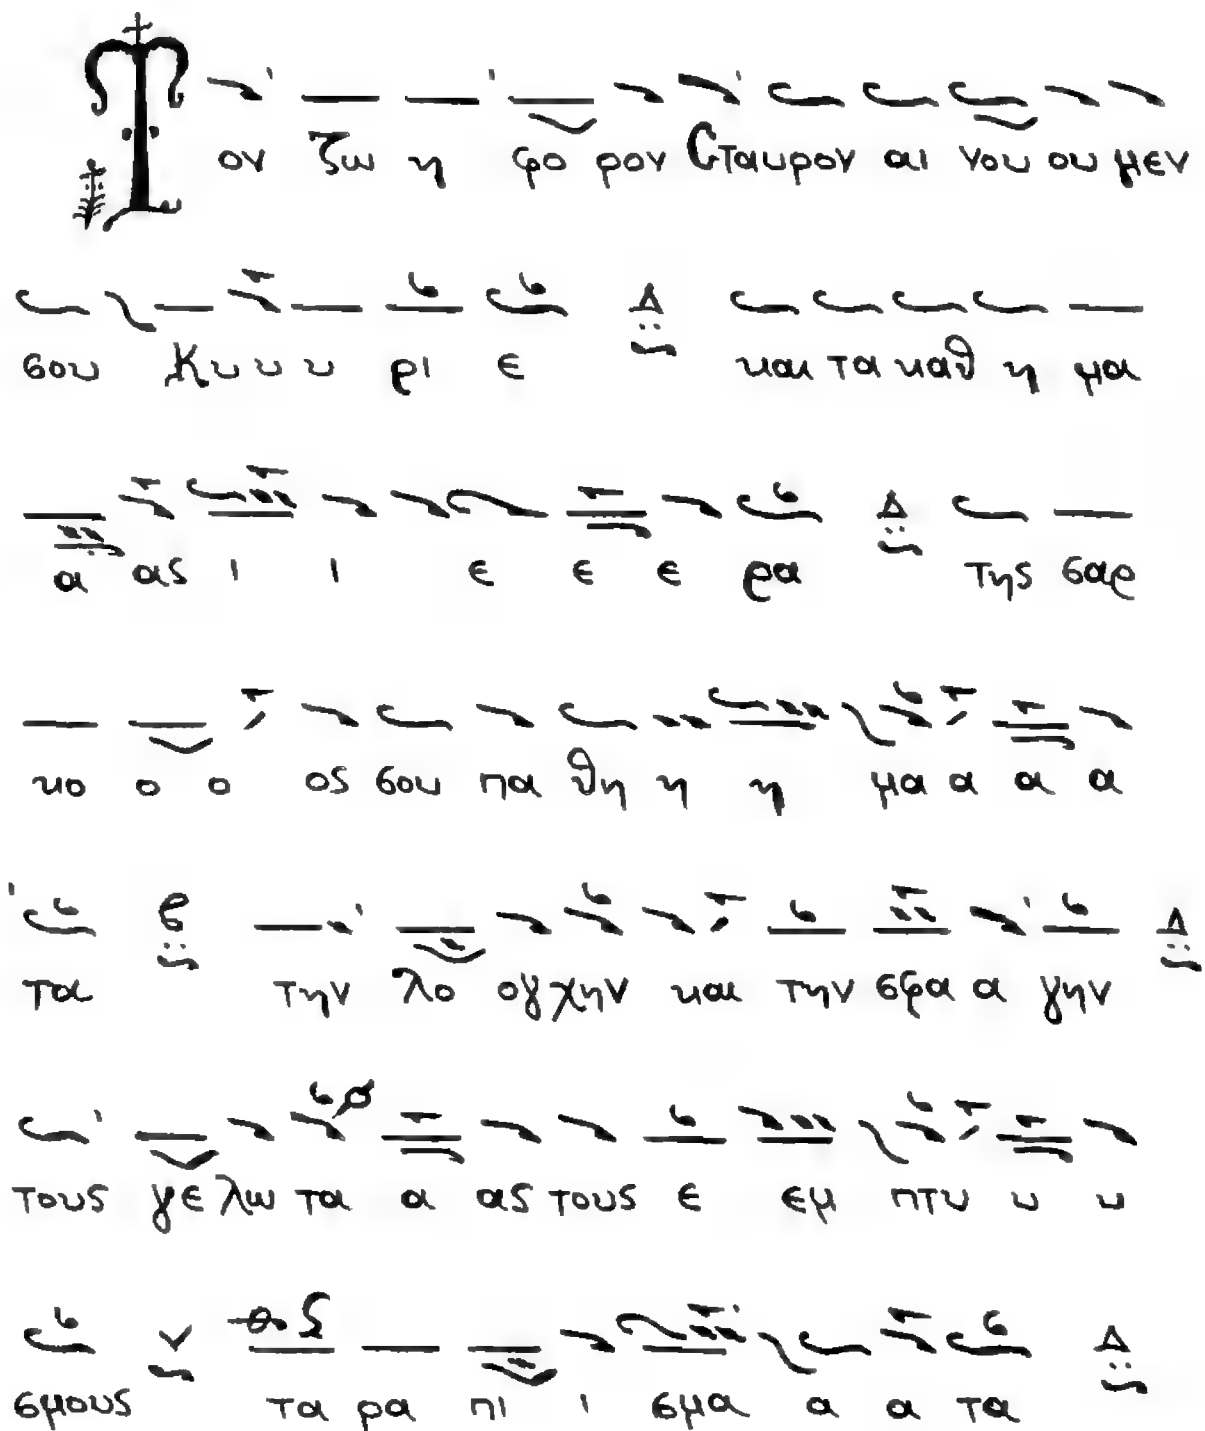 Τ ον ζω η φο ρον Σταυρον αι νου ου μεν
σου Κυ υ υ ρι ε Δ και τα καθ η μα
α ας ι ι ε ε ε ρα Δ της σαρ
κο ο ο ος σου πα θη η η μα α α α
τα την λο ογ χην και την σφα α γην Δ
τους γε λω τα α ας τους ε εμ πτυ υ υ
σμους τα ρα πι ι σμα α α τα Δ